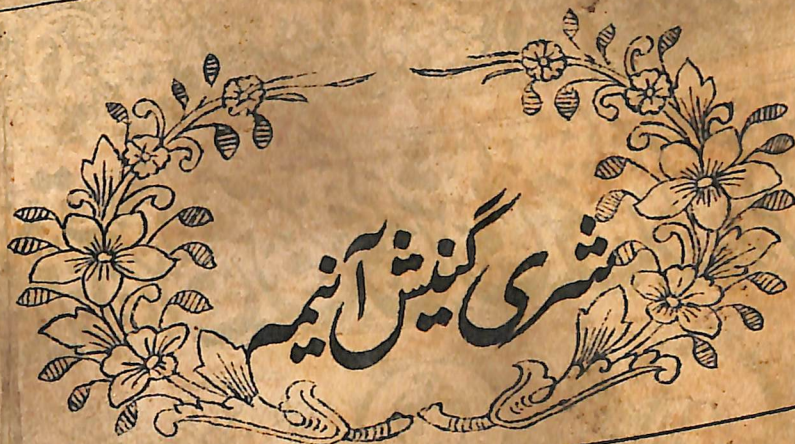 شری گنیش آنیمہ